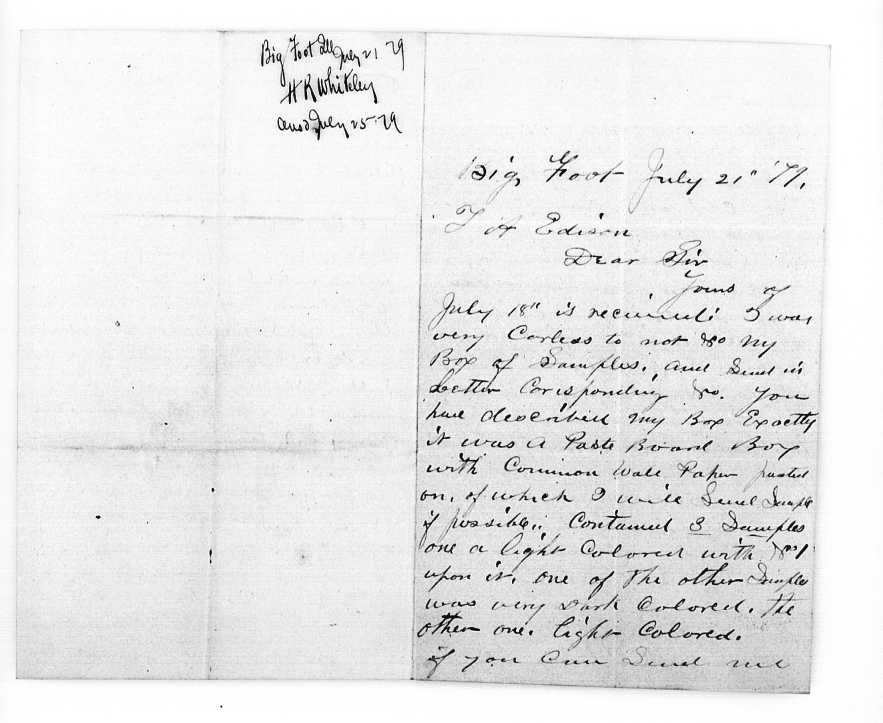 Big Foot Ill July 21 79
H K Whitley
Ansd July 25 79
Big Foot July 21" 79.
T A Edison
Dear Sir
Yours of
July 18" is recieved. I was
very Carless to not No my
Box of Samples. and Send in
Letter Corisponding No. You
have described my Box Exactly
it was a Paste Board Box
with Common Wall Paper pasted
on, of which I will Send Sample
if possible. Contained 3 Samples
one a light Colored with No 1
upon it. one of the other Samples
was very Dark Colored. the
other one. light Colored.
if you Can Send me